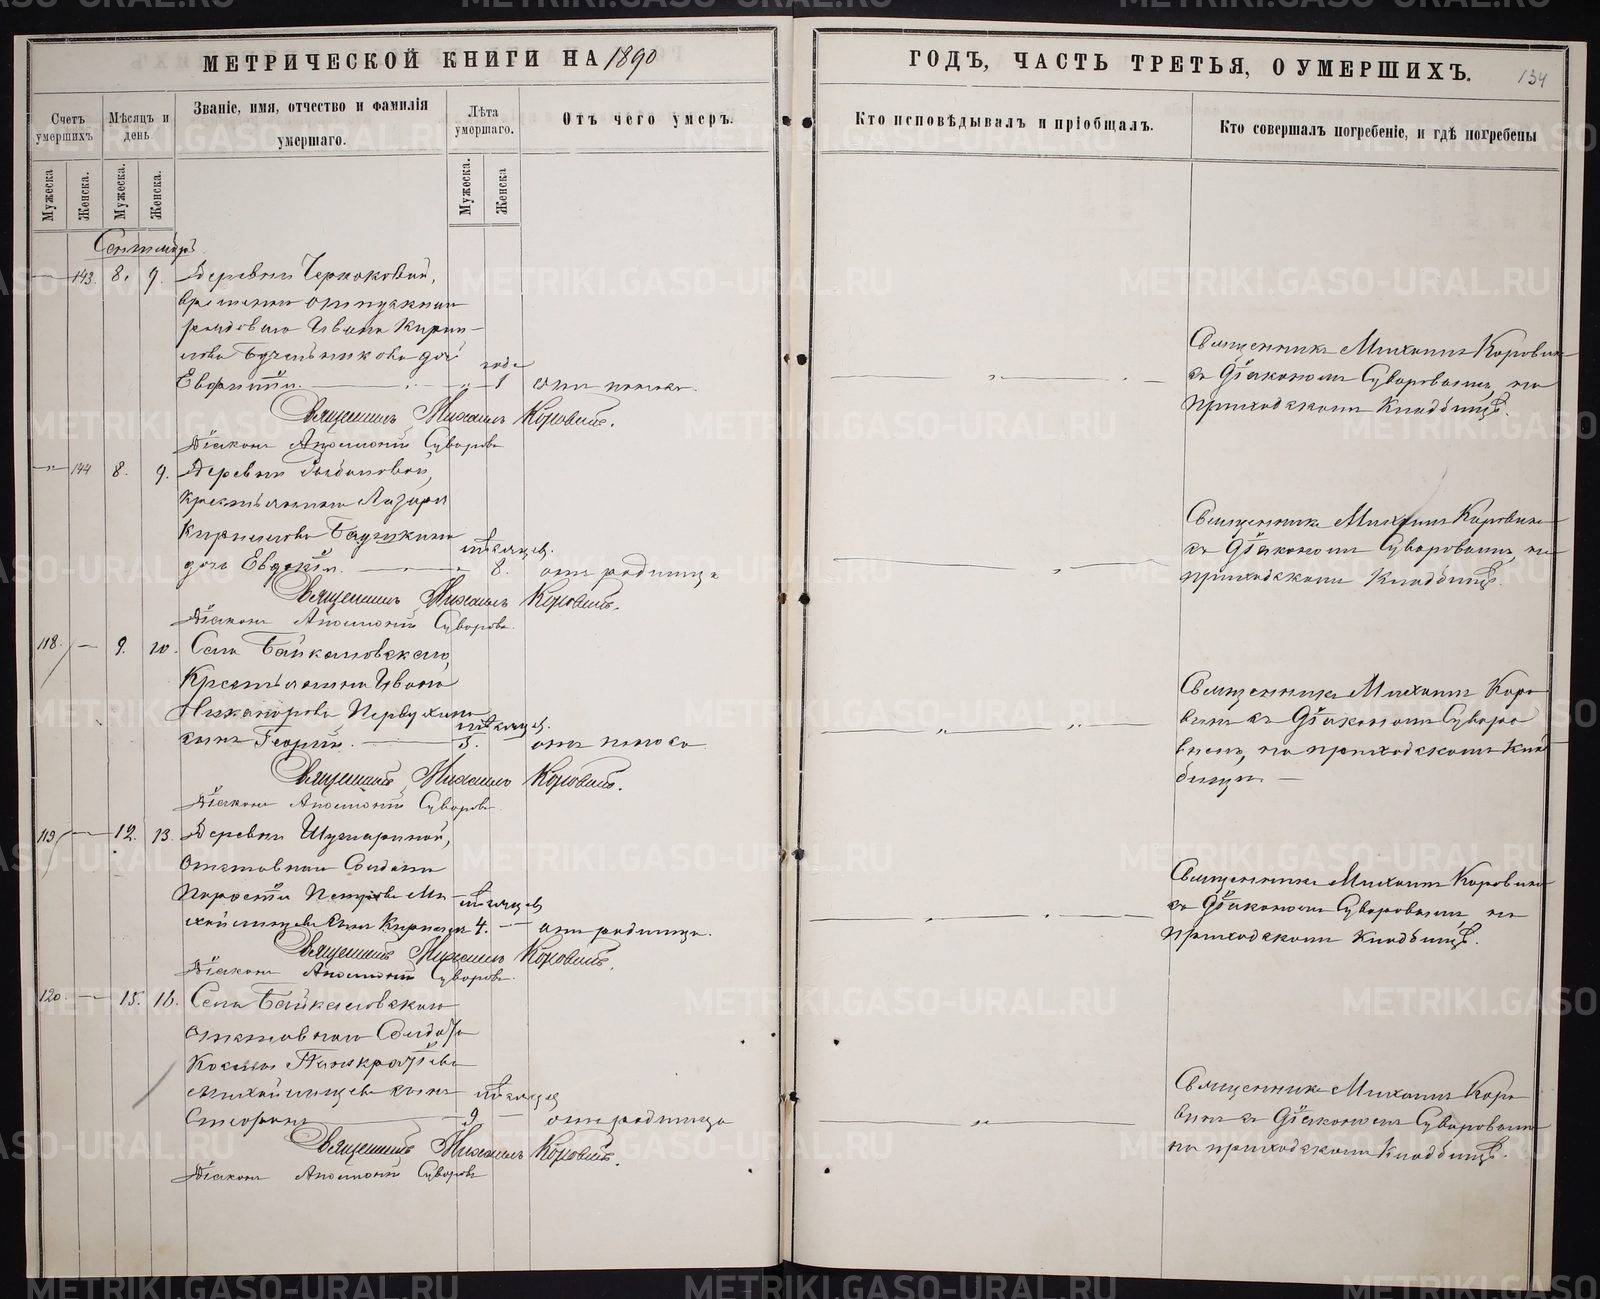 МЕТРИЧЕСКОЙ КНИГИ НА 1890
Счетъ умершихъ
Мѣсяцъ и день
Званіе, имя, отчество и фамилія умершаго.
Лѣта умершаго.
Отъ чего умеръ.
Мужеска
Женска.
Мужеска.
Женска.
Мужеска.
Женска
Сентябрь
143. 8. 9. Деревни
временно отпускнаго
рядоваго Ивана Кирил-
лова дочь
Евфимія. 1 года отъ поноса.
Священникъ Михаилъ Коровинъ.
Діаконъ Аполлоній Суворовъ
144 8. 9. Деревни
крестьянина Лазаря
Кириллова
дочь Евдокія. 8. мѣсяцев. отъ родимца
Священникъ Михаилъ Коровинъ.
Діаконъ Аполлоній Суворовъ.
118. 9. 10. Села Байкаловскаго,
Крестьянина Ивана
Никанорова Первухина
сынъ Георгій. мѣсяцев. отъ поноса
Священникъ Михаилъ Коровинъ.
Діаконъ Аполлоній Суворовъ.
119 12. 13. Деревни
отставнаго Солдата
Петрова Ми-
сынъ 4. мѣсяцев отъ родимца.
Священникъ Михаилъ Коровинъ.
Діаконъ Аполлоній Суворовъ.
120. 15. 16. Села Байкаловскаго
отставнаго Солдата
Космы Панкратіева
сынъ
9 мѣсяцев отъ родимца
Священникъ Михаилъ Коровинъ.
Діаконъ Аполлоній Суворовъ
ГОДЪ, ЧАСТЬ ТРЕТЬЯ, О УМЕРШИХЪ.
134
Кто исповѣдывалъ и пріобщалъ.
Кто совершалъ погребеніе, и гдѣ погребены
Священникъ Михаилъ Коровинъ
съ Діакономъ Суворовымъ, на
приходскомъ кладбищѣ.
Священникъ Михаилъ Коровинъ
съ Діакономъ Суворовымъ, на
приходскомъ кладбищѣ.
Священникъ Михаилъ Коро
винъ съ Діакономъ Суворо
вымъ, на приходскомъ клад
бищѣ.
Священникъ Михаилъ Коровинъ
съ Діакономъ Суворовымъ, на
приходскомъ кладбищѣ.
Священникъ Михаилъ Коро
винъ съ Діакономъ Суворовымъ
на приходскомъ кладбищѣ.
METRIKI.GASO-URAL.RU